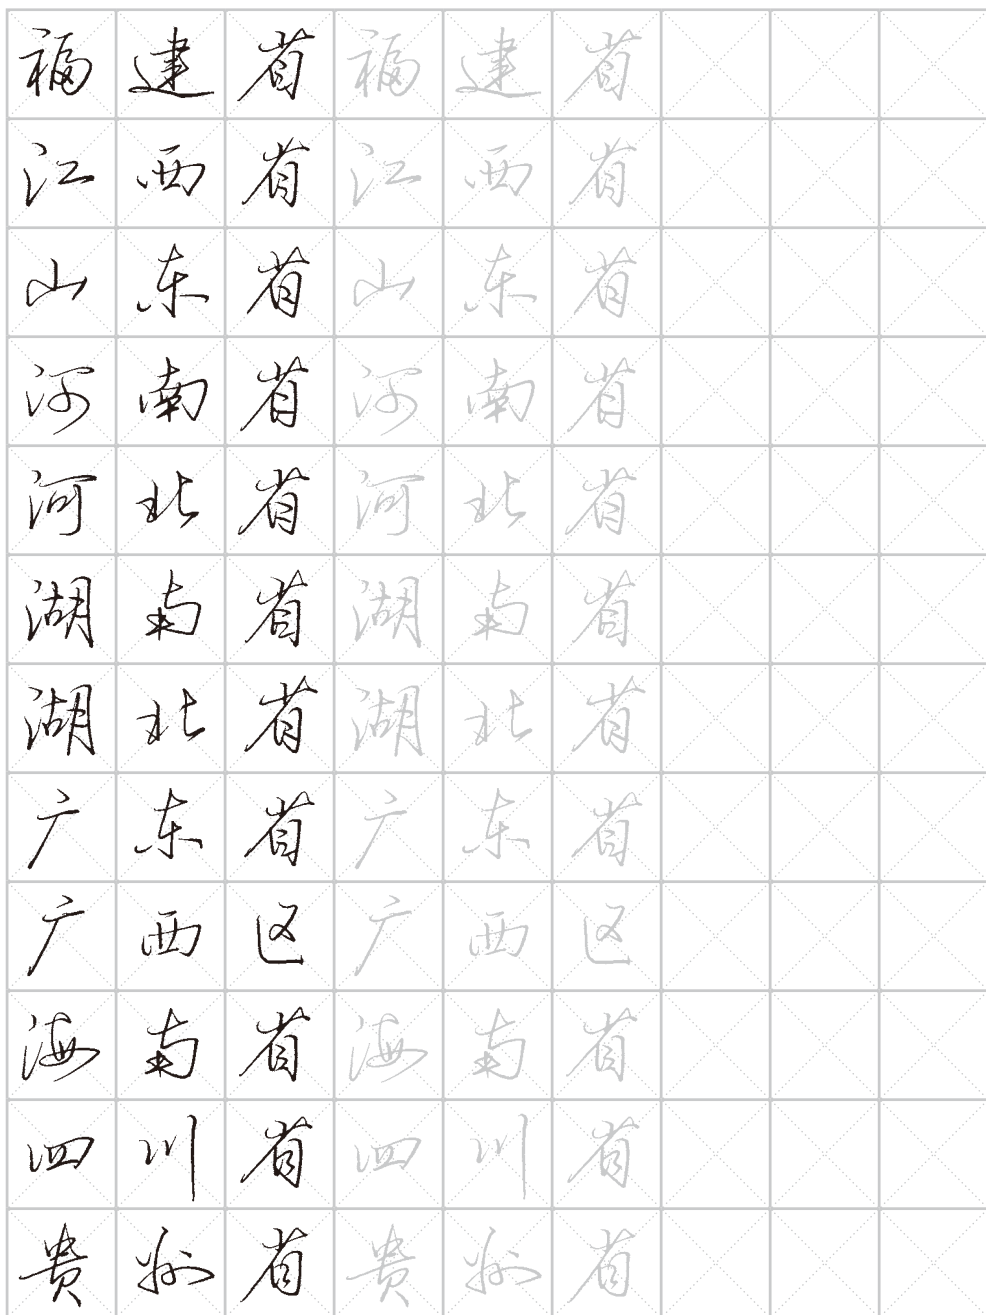 福建省福建省
江西省江西省
山东省山东省
河南省河南省
河北省河北省
湖南省湖南省
湖北省湖北省
广东省广东省
广西区广西区
海南省海南省
四川省四川省
贵州省贵州省